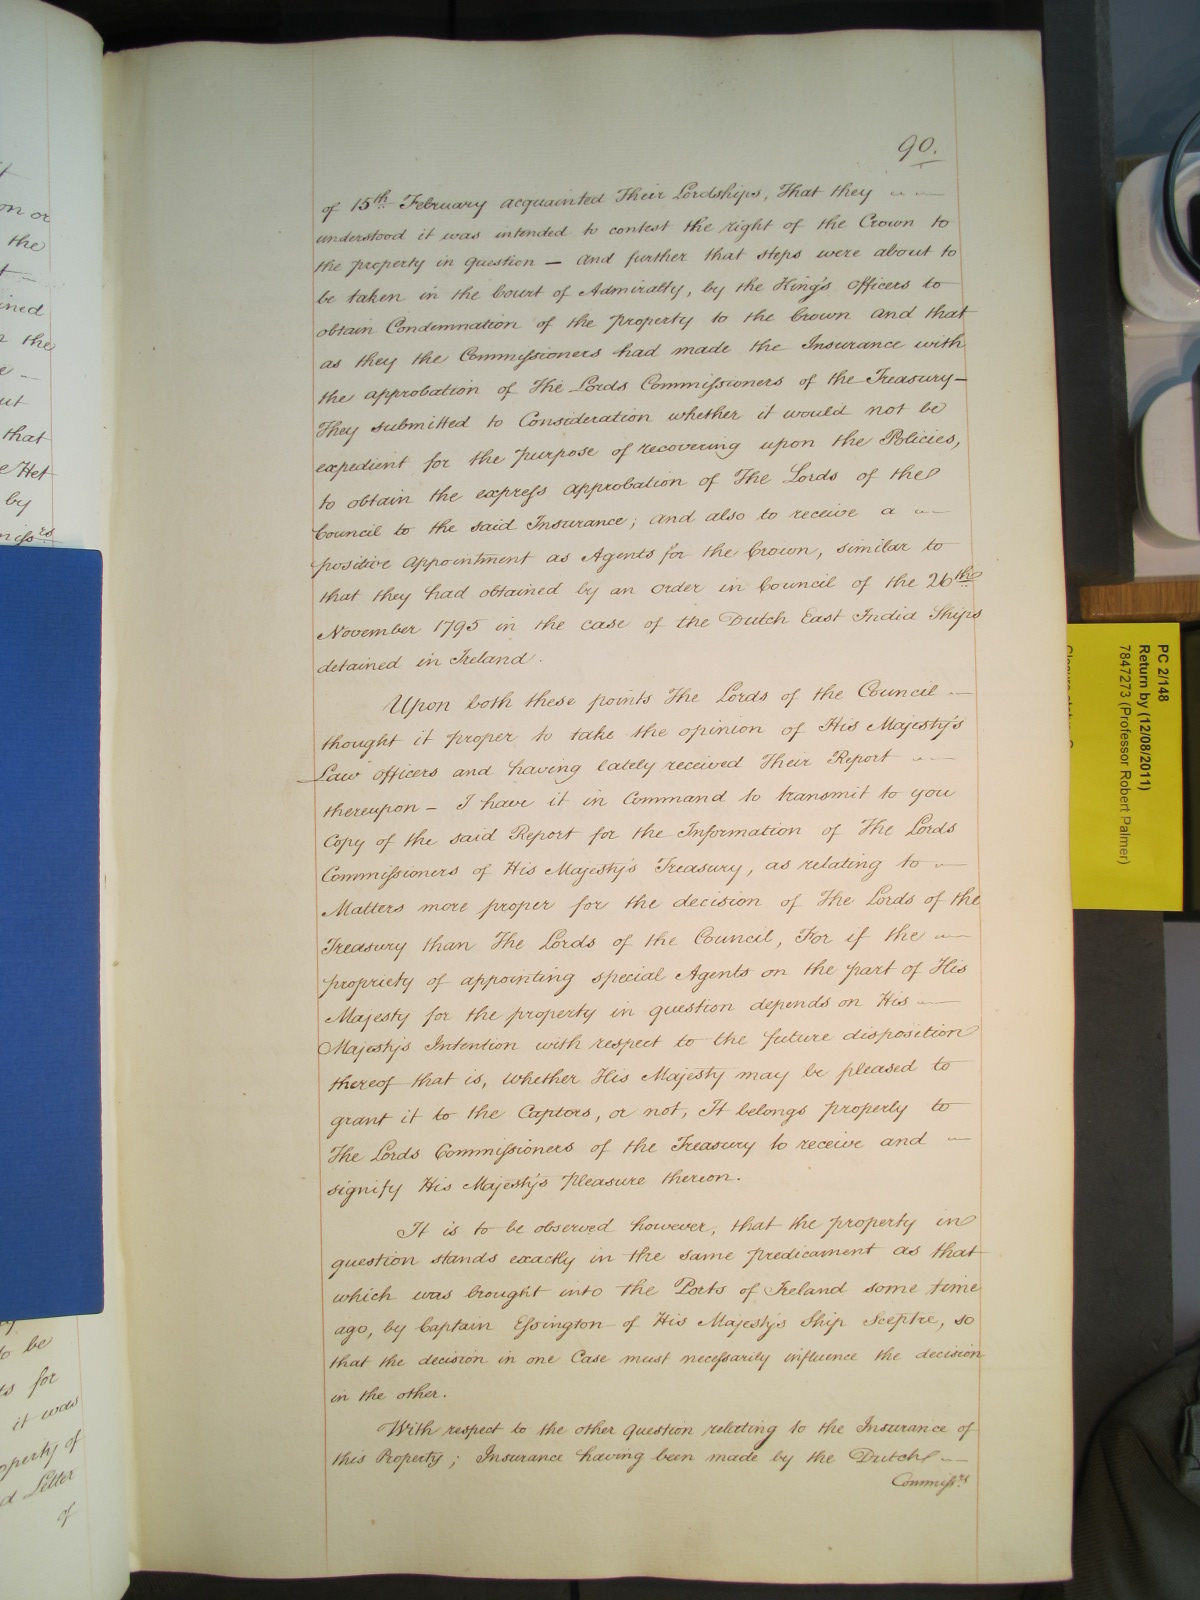 on or
the
ined
the
ut
that
e Het
by
miss.rs
to be
ts for
it was
operty of
d Letter
of
90.
of 15th February acquainted Their Lordships, That they
understood it was intended to contest the right of the Crown to
the property in question — and further that steps were about to
be taken in the Court of Admiralty, by the King's officers to
obtain Condemnation of the property to the Crown and that
as they the Commissioners had made the Insurance with
the approbation of The Lords Commissioners of the Treasury —
They submitted to Consideration whether it would not be
expedient for the purpose of recovering upon the Policies,
to obtain the express approbation of The Lords of the
Council to the said Insurance; and also to receive a
positive appointment as Agents for the Crown, similar to
that they had obtained by an order in Council of the 26th
November 1795 in the case of the Dutch East India Ships
detained in Ireland.
Upon both these points The Lords of the Council —
thought it proper to take the opinion of His Majesty's
Law officers and having lately received Their Report
thereupon — I have it in Command to transmit to you
Copy of the said Report for the Information of The Lords
Commissioners of His Majesty's Treasury, as relating to —
Matters more proper for the decision of The Lords of the
Treasury than The Lords of the Council, For if the —
propriety of appointing special Agents on the part of His
Majesty for the property in question depends on His —
Majesty's Intention with respect to the future disposition
thereof that is, whether His Majesty may be pleased to
grant it to the Captors, or not, It belongs properly to
The Lords Commissioners of the Treasury to receive and —
signify His Majesty's Pleasure thereon.
It is to be observed however, that the property in
question stands exactly in the same predicament as that
which was brought into the Ports of Ireland some time
ago, by Captain Essington of His Majesty's Ship Sceptre, so
that the decision in one Case must necessarily influence the decision
in the other.
With respect to the other question relating to the Insurance of
this Property; Insurance having been made by the Dutch —
Commiss.rs
PC 2/148
Return by (12/08/2011)
7847273 (Professor Robert Palmer)